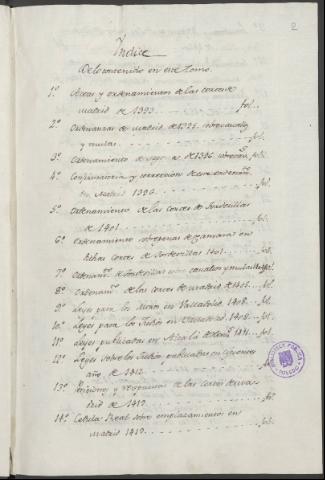 2
Índice
De lo contenido en este Tomo.
1º. Actas y ordenamientos de las cortes de
Madrid de 1393. fol.
2º. Ordenanzas de Madrid de 1395. sobre
y mulas. fol.
3º. Ordenamiento de de 1396. fol.
4º. Confirmatoria y correccion de
en Madrid 1396. fol.
5º. Ordenamiento de las Cortes de Tordecillas
de 1401. fol.
6º. Ordenamiento sobre penas de camara en
dichas Cortes de Tordecillas 1401. fol.
7º. Ordenamº. de Tordecillas sobre caballos y mulas fol.
8º. Ordenamº. de las Cortes de Madrid de 1405. fol.
9º. Leyes para los Moros en Valladolid 1408. fol.
10º. Leyes para los Judíos en Valladolid 1408. fol.
11º. Leyes publicadas en Alcalá de 1411. fol.
12º. Leyes sobre los Judíos publicadas en
año de 1412. fol.
13º. y respuestas de las Cortes de Ma-
drid de 1419. fol.
14º. Cedula Real sobre emplazamiento en
Madrid 1419. fol.
BIBLIOTECA PÚBLICA
TOLEDO